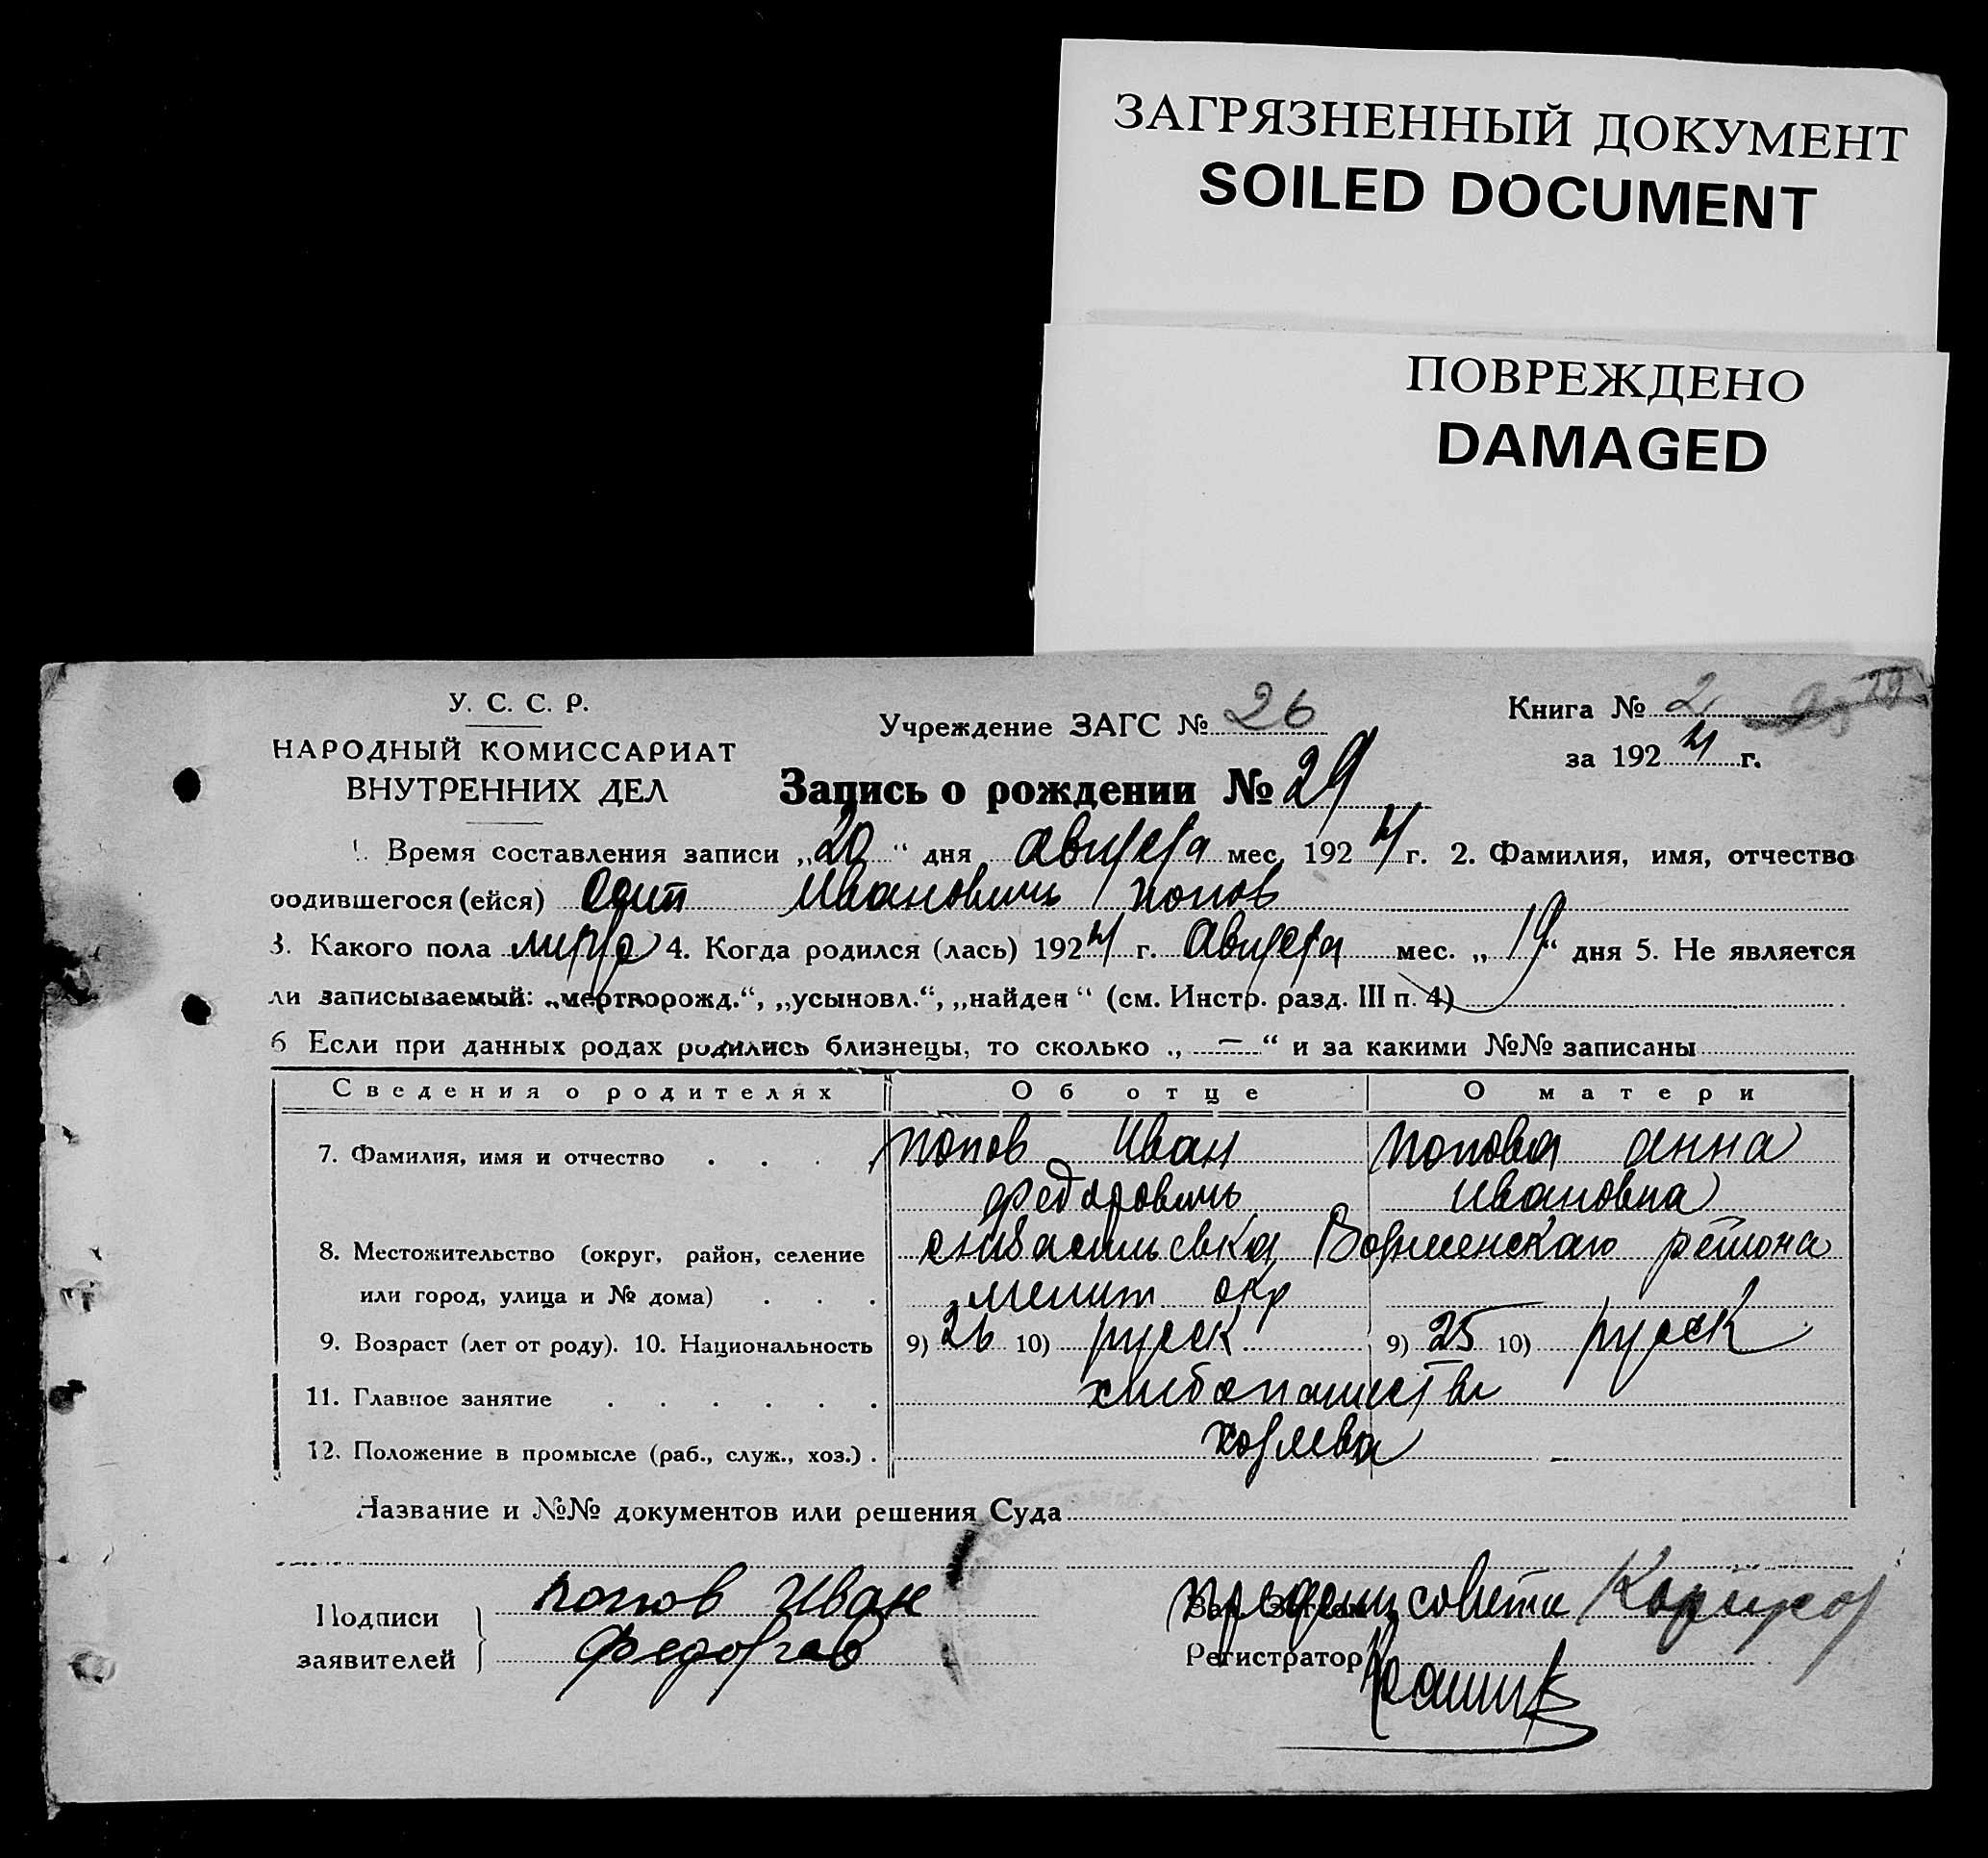 ЗАГРЯЗНЕННЫЙ ДОКУМЕНТ
SOILED DOCUMENT
ПОВРЕЖДЕНО
DAMAGED
У. С. С. Р.
НАРОДНЫЙ КОМИССАРИАТ
ВНУТРЕННИХ ДЕЛ
Учреждение ЗАГС № 26
Книга № 2
за 1924 г.
Запись о рождении № 29
1. Время составления записи „20“ дня августа мес. 1924 г. 2. Фамилия, имя, отчество
родившегося (ейся) Ивановичь попов
3. Какого пола 4. Когда родился (лась) 1924 г. августа мес. „19“ дня 5. Не является
ли записываемый: „мертворожд.“, „усыновл.“, „найден“ (см. Инстр. разд. III п. 4)
6 Если при данных родах родились близнецы, то сколько „—“ и за какими №№ записаны
Сведения о родителях Об отце О матери
7. Фамилия, имя и отчество . . . . Попов Иван Попова анна
федоровичь Ивановна
8. Местожительство (округ, район, селение района
или город, улица и № дома) . . . мелит окр
9. Возраст (лет от роду). 10. Национальность 9) 26 10) руск 9) 25 10) руск
11. Главное занятие . . . . . .
12. Положение в промысле (раб., служ., хоз.) .
Название и №№ документов или решения Суда
Подписи
заявителей
попов Иван
Регистратор